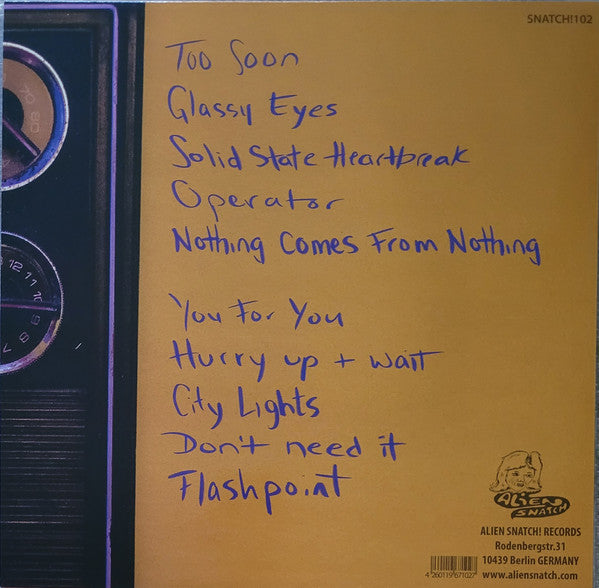 SNATCH!102
Too Soon
Glassy Eyes
Solid State Heartbreak
Operator
Nothing Comes From Nothing
You For You
Hurry up + wait
City Lights
Don't need it
Flashpoint
12 11 10 9 8 7
ALIEN
SNATCH
ALIEN SNATCH! RECORDS
Rodenbergstr.31
10439 Berlin GERMANY
www.aliensnatch.com
4 260119 671027